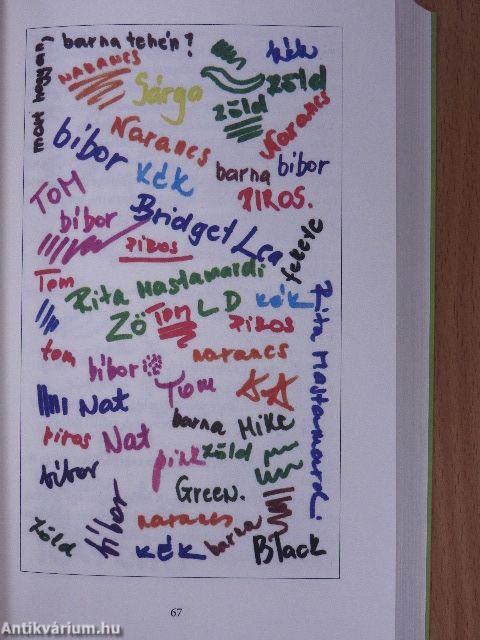 barna tehén?
kék
NARANCS
Sárga
zöld
zöld
Narancs
Narancs
bíbor
kék
barna
bíbor
PIROS.
TOM
bíbor
Bridget Lea
PIROS
fekete
Tom
Rita Mastamardi
kék
ZÖ
Tom
LD
PIROS
Rita Mastamardi
tom
bíbor
narancs
Tom
Nat
barna Mike
piros
Nat
pink
zöld
bíbor
Green.
bíbor
zöld
narancs
kék
barna
Black
67
Antikvárium.hu